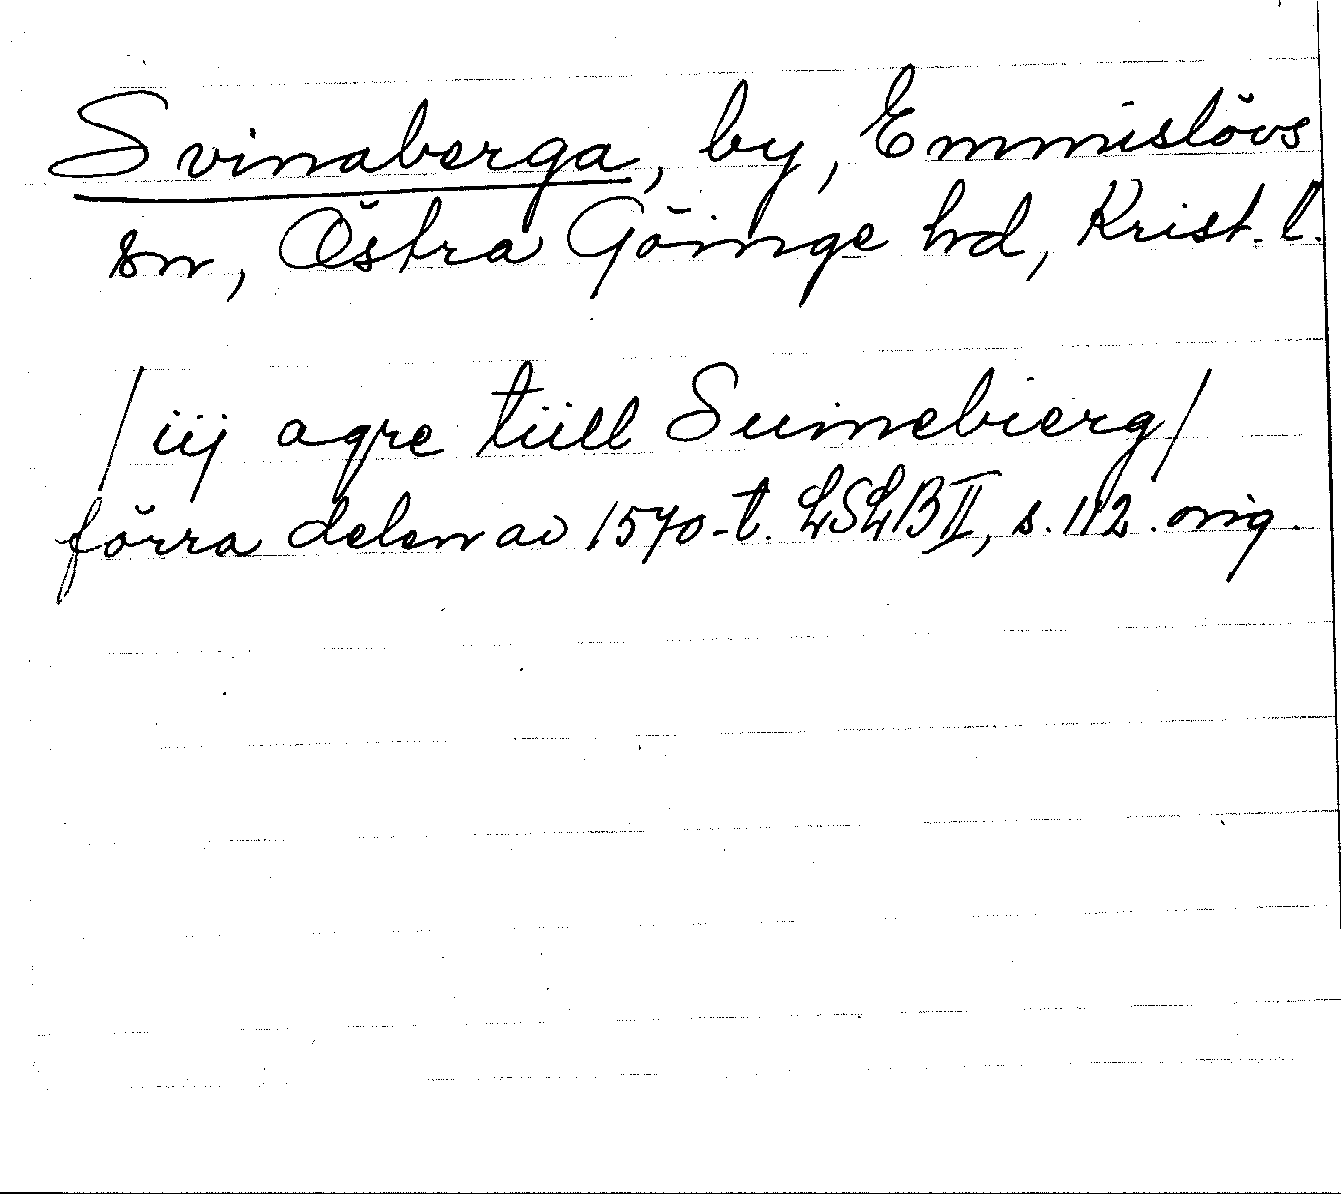 Svinaberga, by, Emmislövs
sn, Östra Göinge hd, Krist. l.
/iij agre tiill Suinebierg/
förra delen av 1570-t. LSLB II, s. 112. orig.